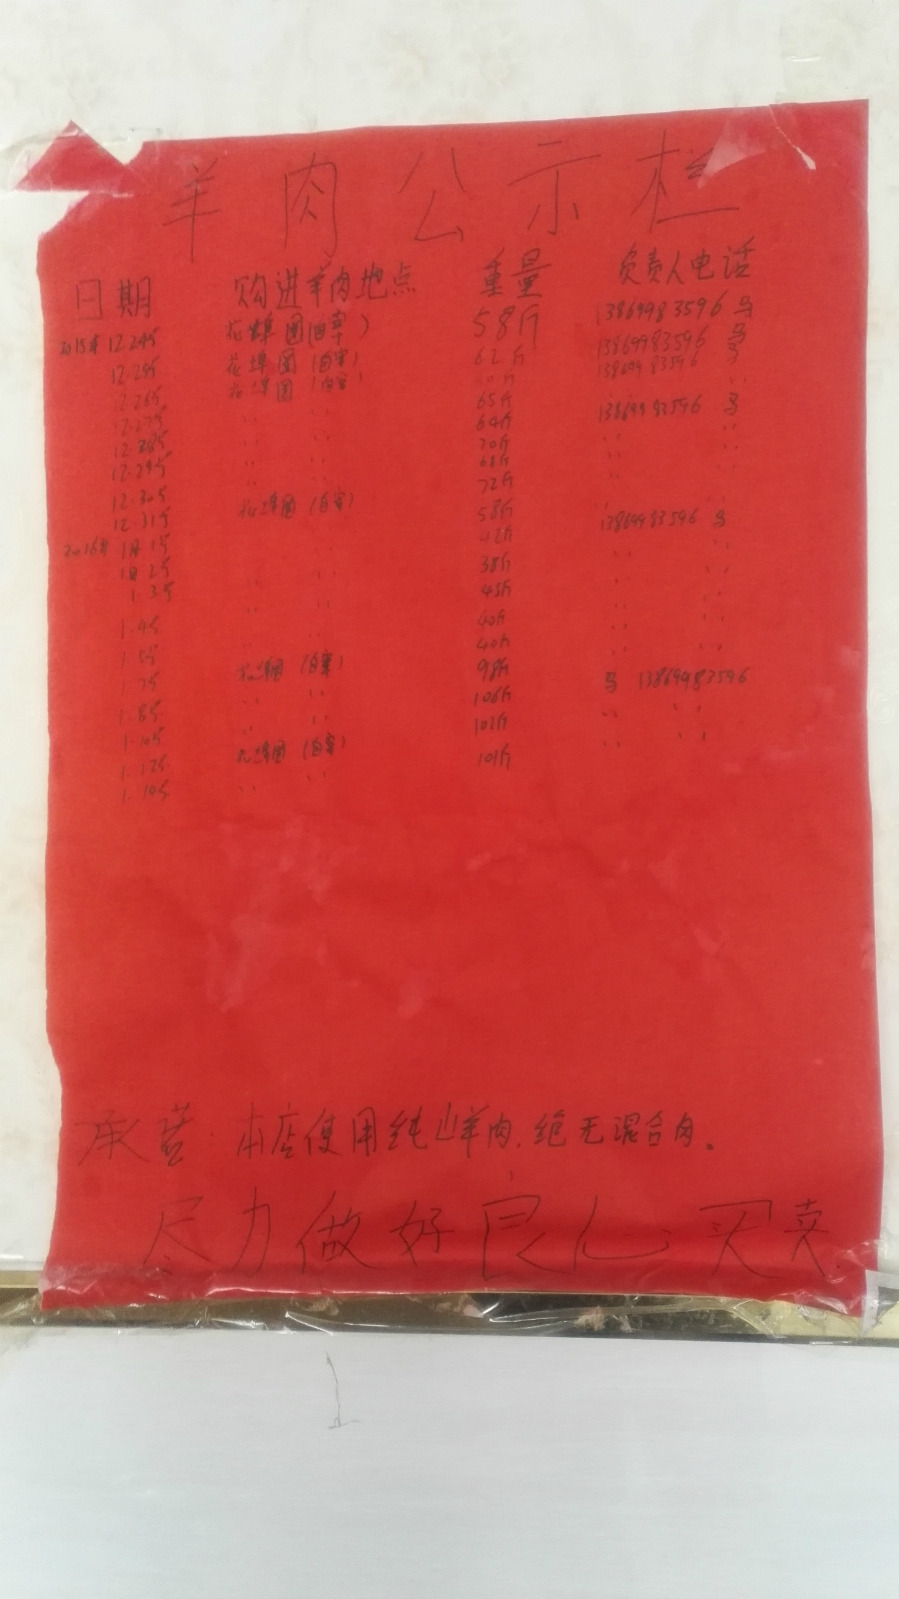 羊肉公示栏
日期 购进羊肉地点 重量 负责人电话
2015年 12.24号 花埠圈(自宰) 58斤 13869983596 马
12.25号 花埠圈(自宰) 62斤 13869983596 马
12.26号 花埠圈(自宰) 13869983596 马
12.27号 〃 〃 65斤 〃
12.28号 〃 〃 64斤 13869983596 马
12.29号 〃 〃 70斤 〃 〃
12.30号 〃 〃 68斤 〃 〃
12.31号 花埠圈(自宰) 72斤 〃 〃
2016年 1月1号 〃 58斤 13869983596 马
1月2号 〃 〃 42斤 〃 〃
1.3号 〃 〃 38斤 〃 〃
1.4号 〃 〃 45斤 〃 〃
1.5号 〃 〃 40斤 〃 〃
1.7号 (自宰) 40斤 〃 〃
1.8号 〃 〃 98斤 马 13869983596
1.10号 〃 〃 106斤 〃 〃
1.12号 花埠圈(自宰) 102斤 〃 〃
〃 〃 101斤
承营:本店使用纯山羊肉,绝无混合肉。
尽力做好良心买卖.